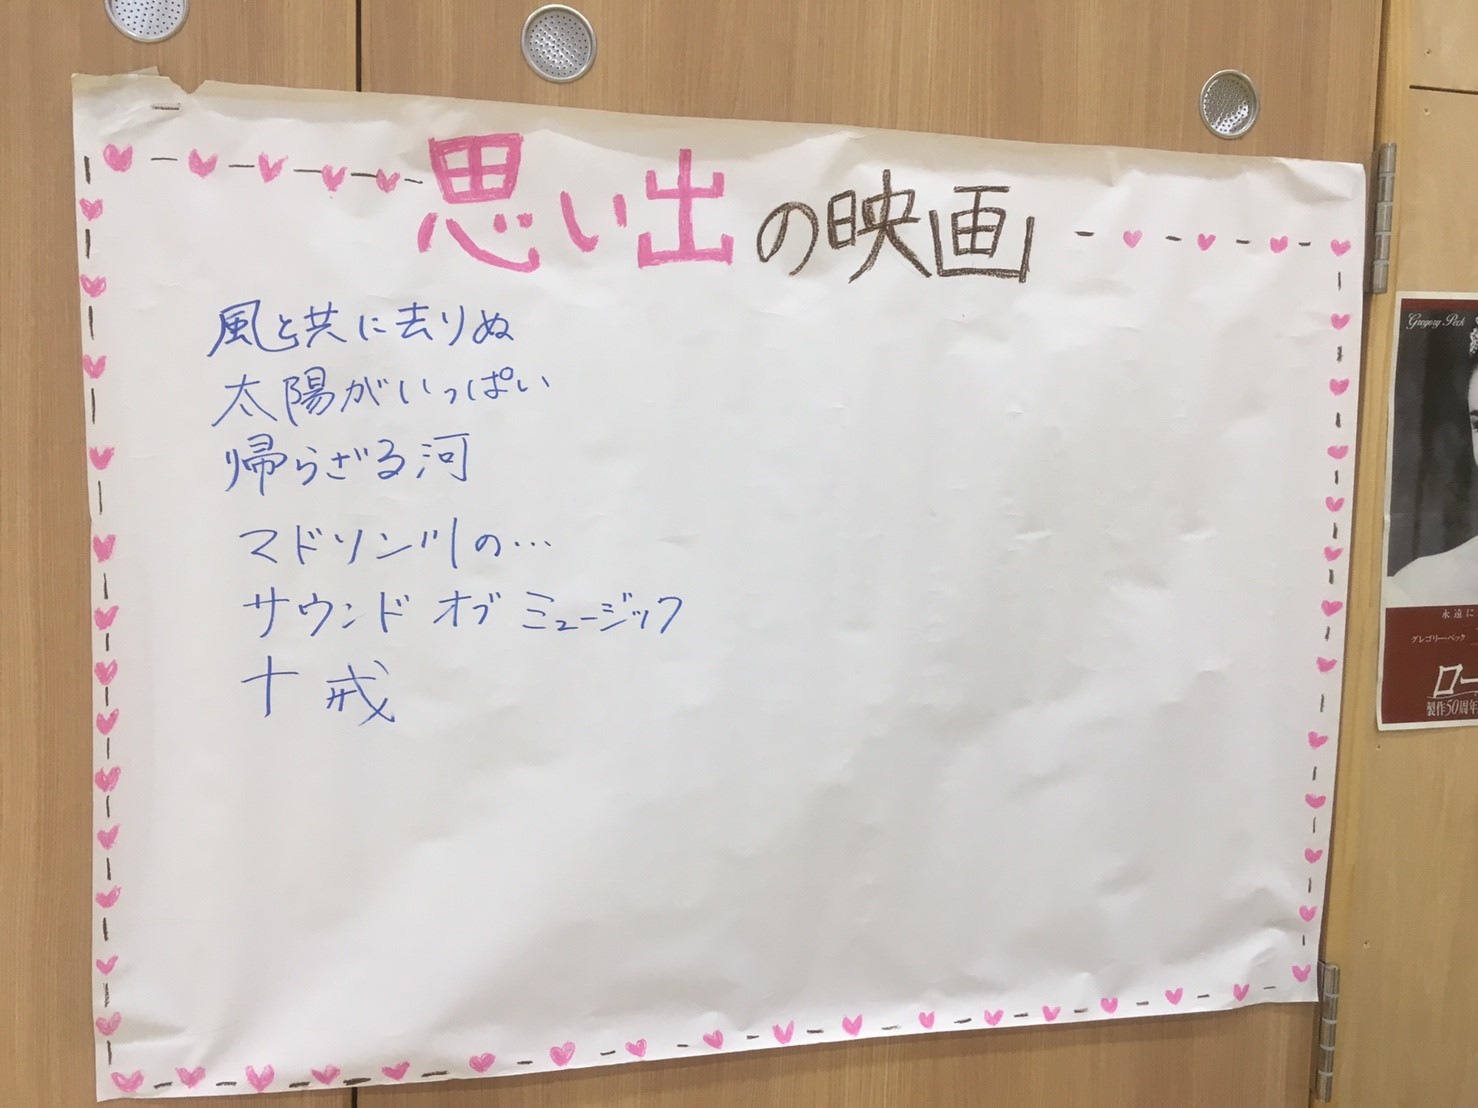 思い出の映画
風と共に去りぬ
太陽がいっぱい
帰らざる河
マドソン川の…
サウンド オブ ミュージック
十戒
Gregory Peck
永遠に
グレゴリー・ペック
ロー
製作50周年